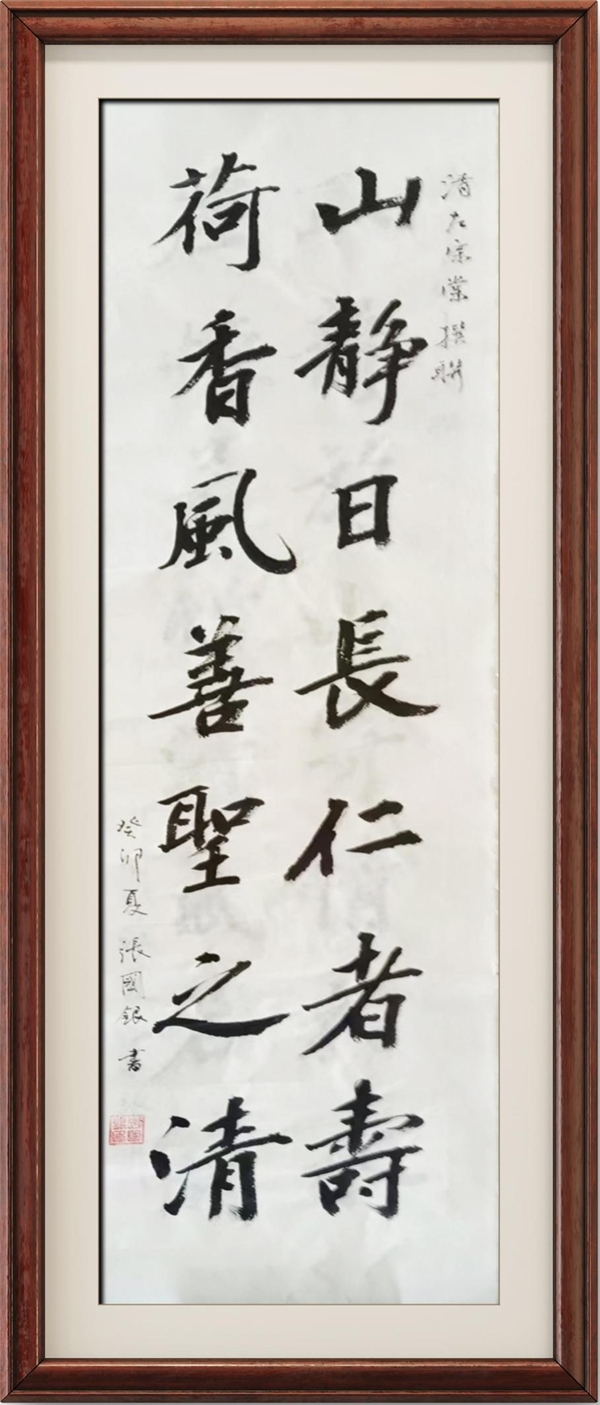 清左宗棠撰聯
山靜日長仁者壽
荷香風善聖之清
癸卯夏 張國銀 書